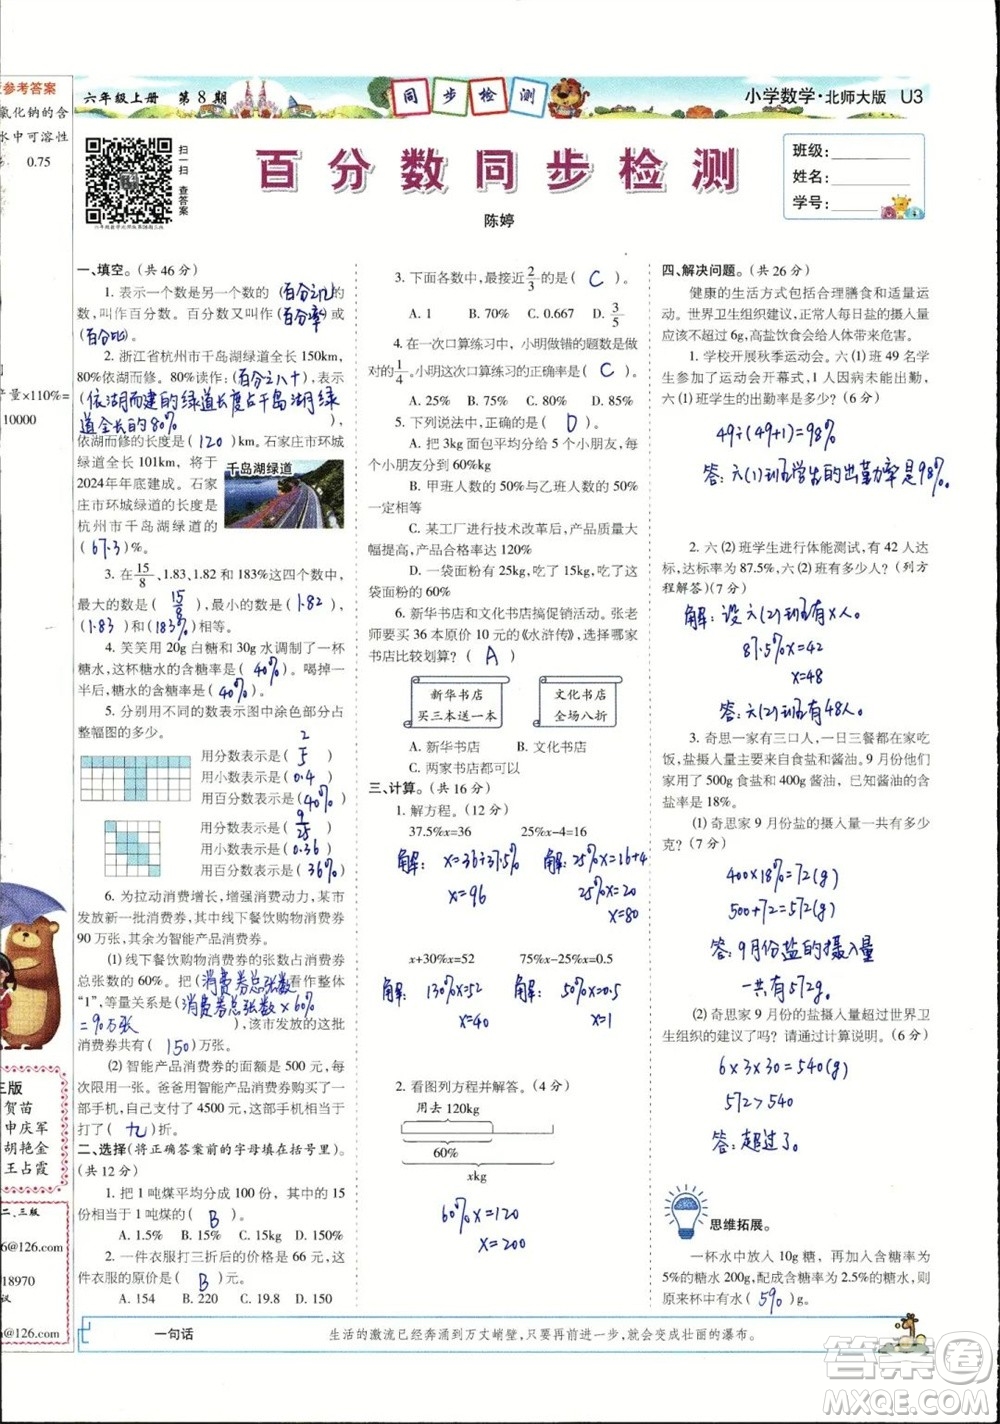 参考答案
氯化钠的含
水中可溶性
0.75
产量×110%=
10000
三版
贺苗
申庆军
胡艳金
王占霞
二、三版
6@126.com
18970
议
a@126.com
六年级上册 第8期
同步检测
小学数学·北师大版 U3
扫一扫 查答案
百分数同步检测
陈婷
班级：
姓名：
学号：
一、填空。（共46分）
1. 表示一个数是另一个数的（百分之几）的
数，叫作百分数。百分数又叫作（百分率）或
（百分比）。
2. 浙江省杭州市千岛湖绿道全长150km，
80%依湖而修。80%读作：（百分之八十），表示
（依湖而建的绿道长度占千岛湖绿
道全长的80%），
依湖而修的长度是（120）km。石家庄市环城
绿道全长101km，将于
2024年年底建成。石家
庄市环城绿道的长度是
杭州市千岛湖绿道的
（67.3）%。
千岛湖绿道
3. 在15/8、1.83、1.82和183%这四个数中，
最大的数是（15/8），最小的数是（1.82），
（1.83）和（183%）相等。
4. 笑笑用20g白糖和30g水调制了一杯
糖水，这杯糖水的含糖率是（40%）。喝掉一
半后，糖水的含糖率是（40%）。
5. 分别用不同的数表示图中涂色部分占
整幅图的多少。
用分数表示是（2/5）
用小数表示是（0.4）
用百分数表示是（40%）
用分数表示是（9/25）
用小数表示是（0.36）
用百分数表示是（36%）
6. 为拉动消费增长，增强消费动力，某市
发放新一批消费券，其中线下餐饮购物消费券
90万张，其余为智能产品消费券。
(1) 线下餐饮购物消费券的张数占消费券
总张数的60%。把（消费券总张数）看作整体
“1”，等量关系是（消费券总张数×60%
=90万张），该市发放的这批
消费券共有（150）万张。
(2) 智能产品消费券的面额是500元，每
部手机限用一张。爸爸用智能消费券购买了一
部手机，自己又支付了4500元，这部手机相当于
打了（九）折。
二、选择（将正确答案前的字母填在括号里）。
（共12分）
1. 把1吨煤平均分成100份，其中的15
份相当于1吨煤的（B）。
A. 1.5% B. 15% C. 15kg D. 150%
2. 一件衣服打三折后的价格是66元，这
件衣服的原价是（B）元。
A. 154 B. 220 C. 19.8 D. 150
3. 下面各数中，最接近2/3的是（C）。
A. 1 B. 70% C. 0.667 D. 3/5
4. 在一次口算练习中，小明做错的题数是做
对的1/4。小明这次口算练习的正确率是（C）。
A. 25% B. 75% C. 80% D. 85%
5. 下列说法中，正确的是（D）。
A. 把3kg面包平均分给5个小朋友，每
个小朋友分到60%kg
B. 甲班人数的50%与乙班人数的50%
一定相等
C. 某工厂进行技术改革后，产品质量大
幅提高，产品合格率达120%
D. 一袋面粉重25kg，吃了15kg，吃了这
袋面粉的60%
6. 新华书店和文化书店搞促销活动。张老
师要买36本原价10元的《水浒传》，选择哪家
书店比较划算？（A）
新华书店
买三本送一本
文化书店
全场八折
A. 新华书店 B. 文化书店
C. 两家书店都可以
三、计算。（共16分）
1. 解方程。（12分）
37.5%x=36 25%x-4=16
解：x=36÷37.5% 解：25%x=16+4
x=96 25%x=20
x=80
x+30%x=52 75%x-25%x=0.5
解：130%x=52 解：50%x=0.5
x=40 x=1
2. 看图列方程并解答。（4分）
用去120kg
60%
xkg
60%x=120
x=200
四、解决问题。（共26分）
健康的生活方式包括合理膳食和适量运
动。世界卫生组织建议，正常人每日盐的摄入量
应该不超过6g，高盐饮食会给人体带来伤害。
1. 学校开展秋季运动会。六(1)班49名学
生参加了运动会开幕式，1人因病未能出勤，
六(1)班学生的出勤率是多少？（6分）
49÷(49+1)=98%
答：六(1)班学生的出勤率是98%。
2. 六(2)班学生进行体能测试，有42人达
标，达标率为87.5%，六(2)班有多少人？（列方
程解答）（7分）
解：设六(2)班有x人。
87.5%x=42
x=48
答：六(2)班有48人。
3. 奇思一家有三口人，一日三餐都在家吃
饭，盐摄入量主要来自食盐和酱油。9月份他们
家用了500g食盐和400g酱油，已知酱油的含
盐率是18%。
(1) 奇思家9月份盐的摄入量一共有多少
克？（7分）
400×18%=72(g)
500+72=572(g)
答：9月份盐的摄入量
一共有572g。
(2) 奇思家9月份的盐摄入量超过世界卫
生组织的建议了吗？请通过计算说明。（6分）
6×3×30=540(g)
572>540
答：超过了。
思维拓展。
一杯水中放入10g糖，再加入含糖率为
5%的糖水200g，配成含糖率为2.5%的糖水，则
原来杯中有水（590）g。
一句话
生活的激流已经奔涌到万丈峭壁，只要再前进一步，就会变成壮丽的瀑布。
答案圈
MXQE.COM